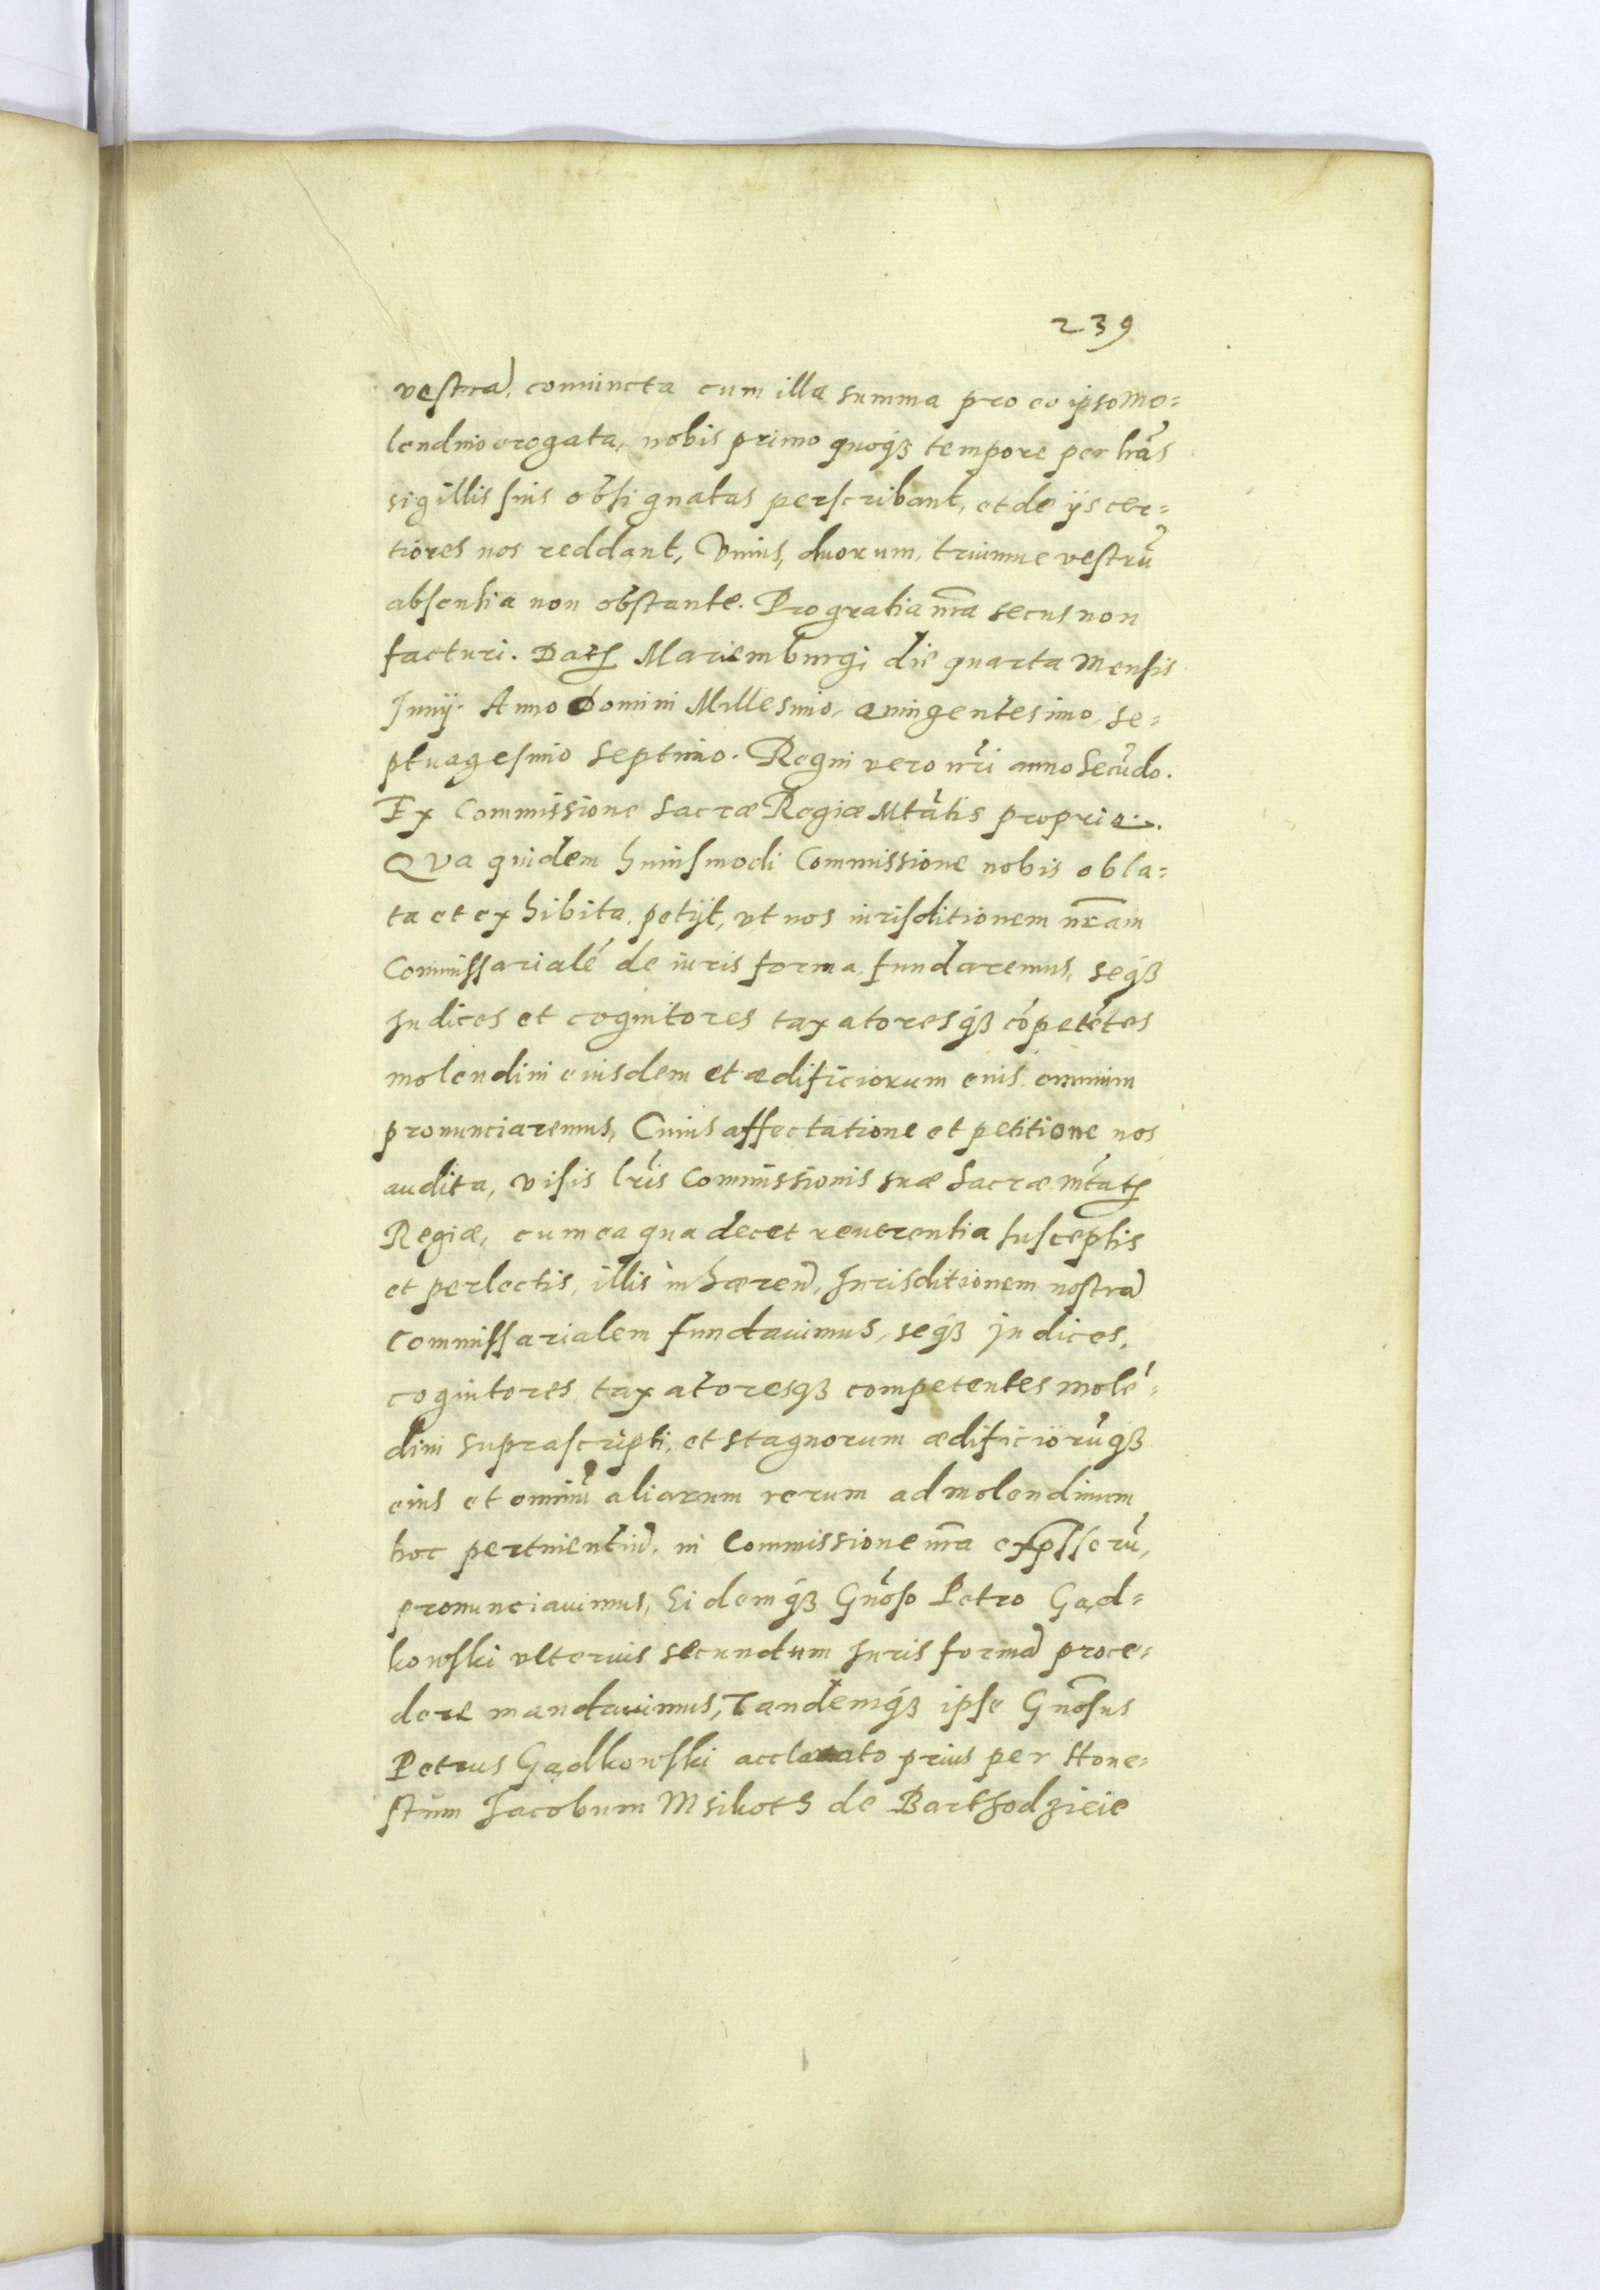 239
vestrā, coniuncta cum illa summa pro eo ipso mo=
lendino erogata, nobis primo quoqꝫ tempore per lr̃as
sigillis suis obsignatas perscribant, et de ijs cer=
tiores nos reddant, Vnius, duorum, triumue vestrũ
absentia non obstante. Pro gratia nr̃a secus non
facturi. Datꝭ Mariemburgi die quarta Mensis
Junij. Anno Domini Millesimo, quingentesimo, se=
ptuagesimo septimo. Regni vero nr̃i anno Secũdo.
Ex Commissione Sacræ Regiæ Mtãtis propria.
QVa quidem huiusmodi Commissione nobis obla=
ta et exhibita, petijt, vt nos iurisditionem nr̃am
Commissarialē de iuris forma fundaremus, seqꝫ
Iudices et cognitores taxatoresqꝫ cõpetẽtes
molendini eiusdem et ædificiorum eius omnium
pronunciaremus, Cuius affectatione et petitione nos
audita, visis lr̃is Commissionis suæ Sacræ Mtãtꝭ
Regiæ, cum ea qua decet reuerentia susceptis
et perlectis, illis inhæren̄, Iurisditionem nostrā
Commissarialem fundauimus, seqꝫ Judices,
cognitores taxatoresqꝫ competentes molē=
dini suprascripti, et stagnorum ædificiorũqꝫ
eius et omniũ aliarum rerum ad molendinum
hoc pertinentiū, in Commissione nr̃a exp̃sserũ,
pronunciauimus, Eidemqꝫ Gñoso Petro Gąd=
kowski vlterius secundum Iuris formā proce=
dere mandauimus, Tandemqꝫ ipse Gñosus
Petrus Gądkowski acclarato prius per Hone=
stum Jacobum Msikots de Barthodzieie